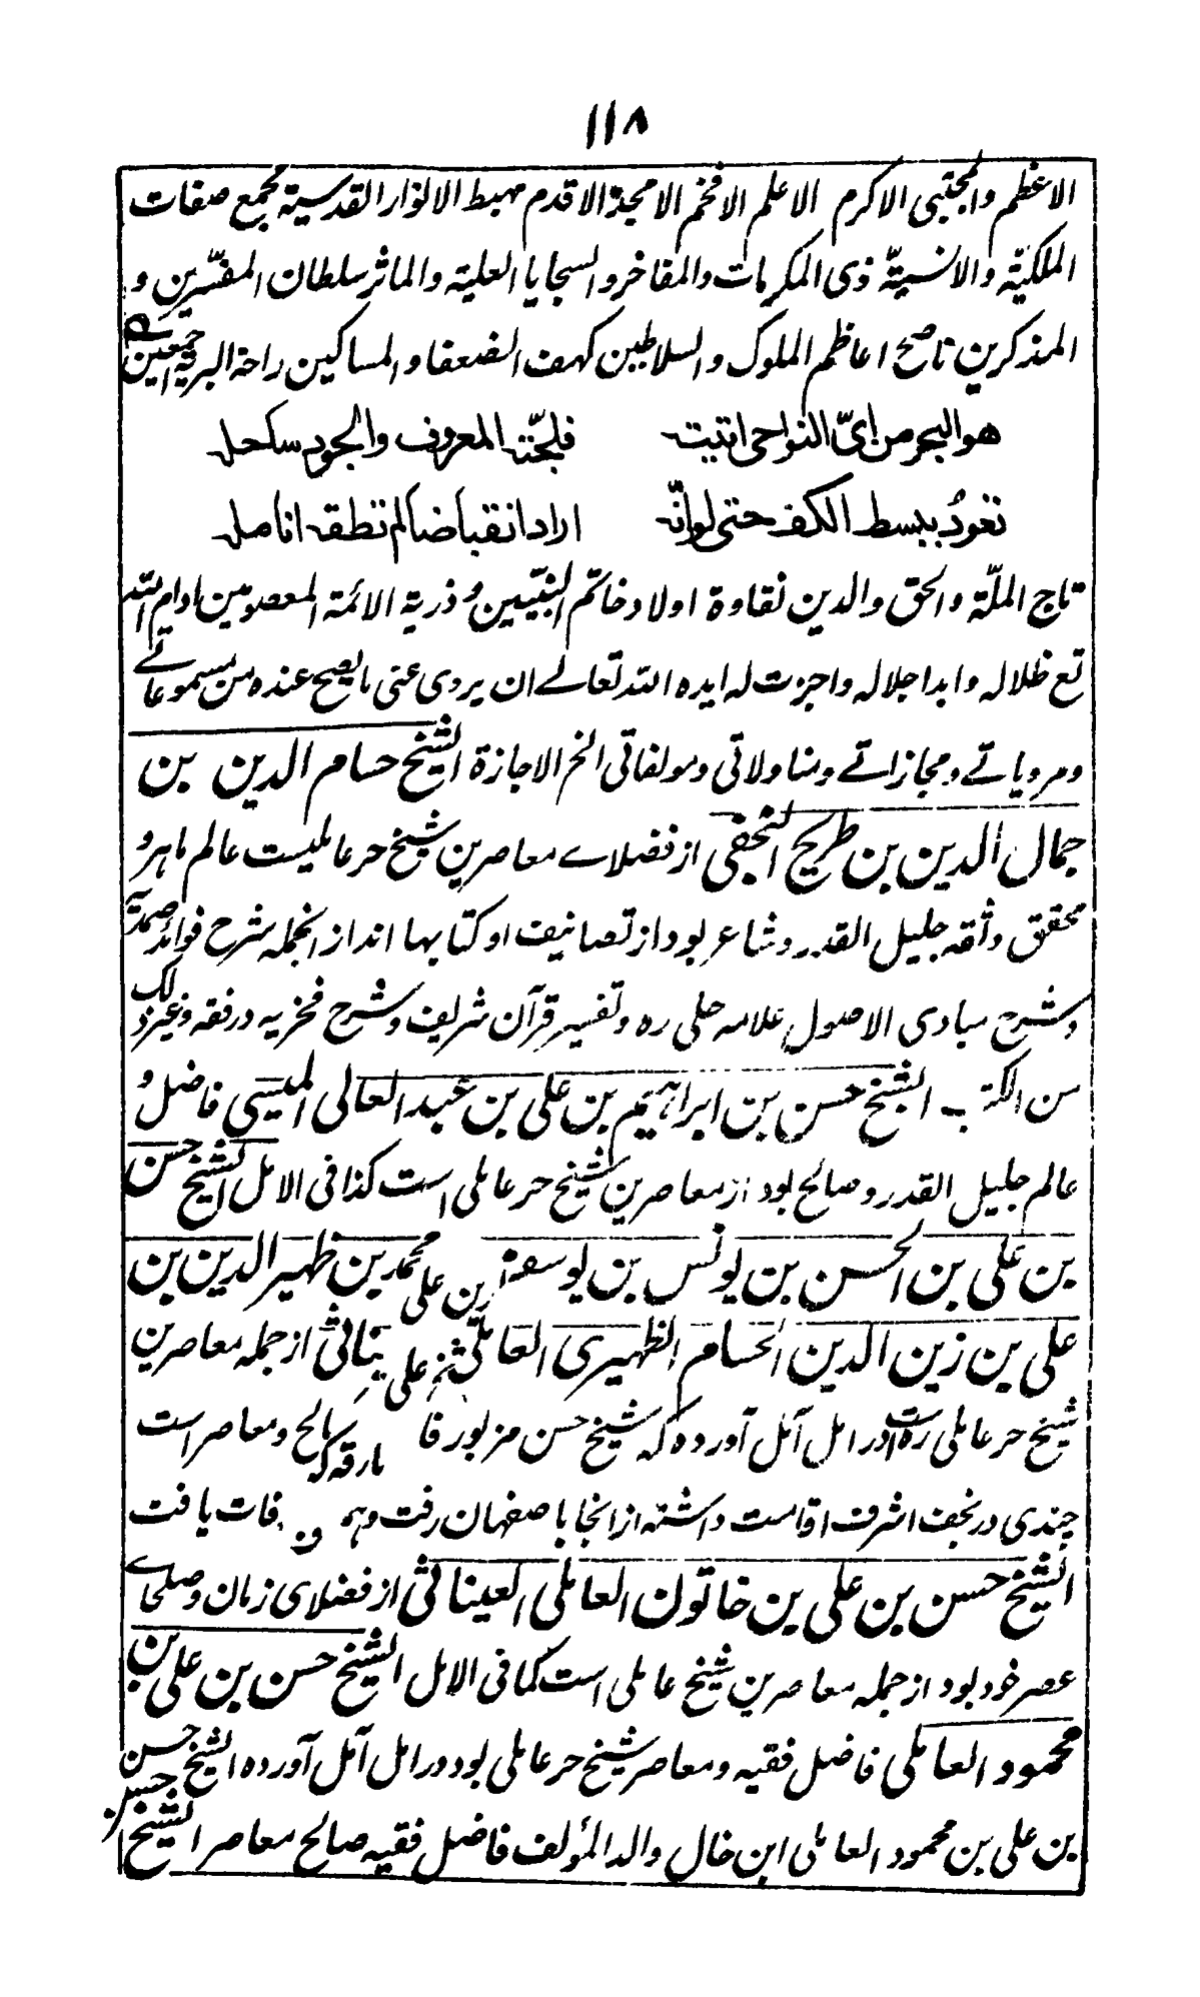 ۱۱۸
الاعظم والمجتبی الاکرم الاعلم الافخم الامجد الاقدم مهبط الانوار القدسیة مجمع صفات
الملکیّة والانسیّة ذی المکرمات والمفاخر والسجایا العلیة والماثر سلطان المفسّرین و
المذکرین ناصح اعاظم الملوک والسلاطین کهف الضعفا والمساکین راحة البریة اجمعین
هو البحر من ایّ النواحی اتیته فلجّته المعروف والجود ساحله
تعودُ ببسط الکف حتی لو انّه اراد انقباضا لم تطقه انامله
تاج الملّة والحق والدین نقاوة اولاد خاتم النبیّین و ذریة الائمة المعصومین ادام الله
تع ظلاله وابدا جلاله واجزت له ایده الله تعالے ان یروی عنی ما یصح عنده من مسموعاتے
ومرویاتے ومجازاتے ومناولاتی ومولفاتی الخ الاجازة الشیخ حسام الدین بن
جمال الدین بن طریح النجفی از فضلاے معاصرین شیخ حر عاملیست عالم ماهر و
محقق وثقه جلیل القدر وشاعر بود از تصانیف او کتابها اند ازانجمله شرح فوائد صمدیه
وشرح مبادی الاصول علامه حلی ره وتفسیر قرآن شریف وشرح فخریه در فقه وغیر ذلک
من الکتب الشیخ حسن بن ابراهیم بن علی بن عبد العالی المیسی فاضل و
عالم جلیل القدر وصالح بود از معاصرین شیخ حر عاملی است کذا فی الامل الشیخ حسن
بن علی بن الحسن بن یونس بن یوسف بن علی محمد بن ظهیر الدین بن
علی بن زین الدین الحسام الظهیری العاملی از جمله معاصرین
شیخ حر عاملی ره است در امل آمل آورده که شیخ حسن مزبور ومعاصر است
چندی در نجف اشرف اقامت داشته ازانجا باصفهان رفت یافت
الشیخ حسن بن علی بن خاتون العاملی العیناثی از فضلای زمان وصلحاے
عصر خود بود از جمله معاصرین شیخ عاملی است کما فی الامل الشیخ حسن بن علی بن
محمود العاملی فاضل فقیه ومعاصر شیخ حر عاملی بود در امل آمل آورده الشیخ حسن
بن علی بن محمود العاملی ابن خال والد المؤلف فاضل فقیه صالح معاصر الشیخ